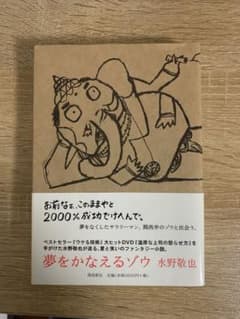 お前なぁ、このままやと
2000％成功でけへんで。
夢をなくしたサラリーマン、関西弁のゾウと出会う。
ベストセラー『ウケる技術』、大ヒットDVD『温厚な上司の怒らせ方』を
手がけた水野敬也が送る、愛と笑いのファンタジー小説。
夢をかなえるゾウ 水野敬也
飛鳥新社